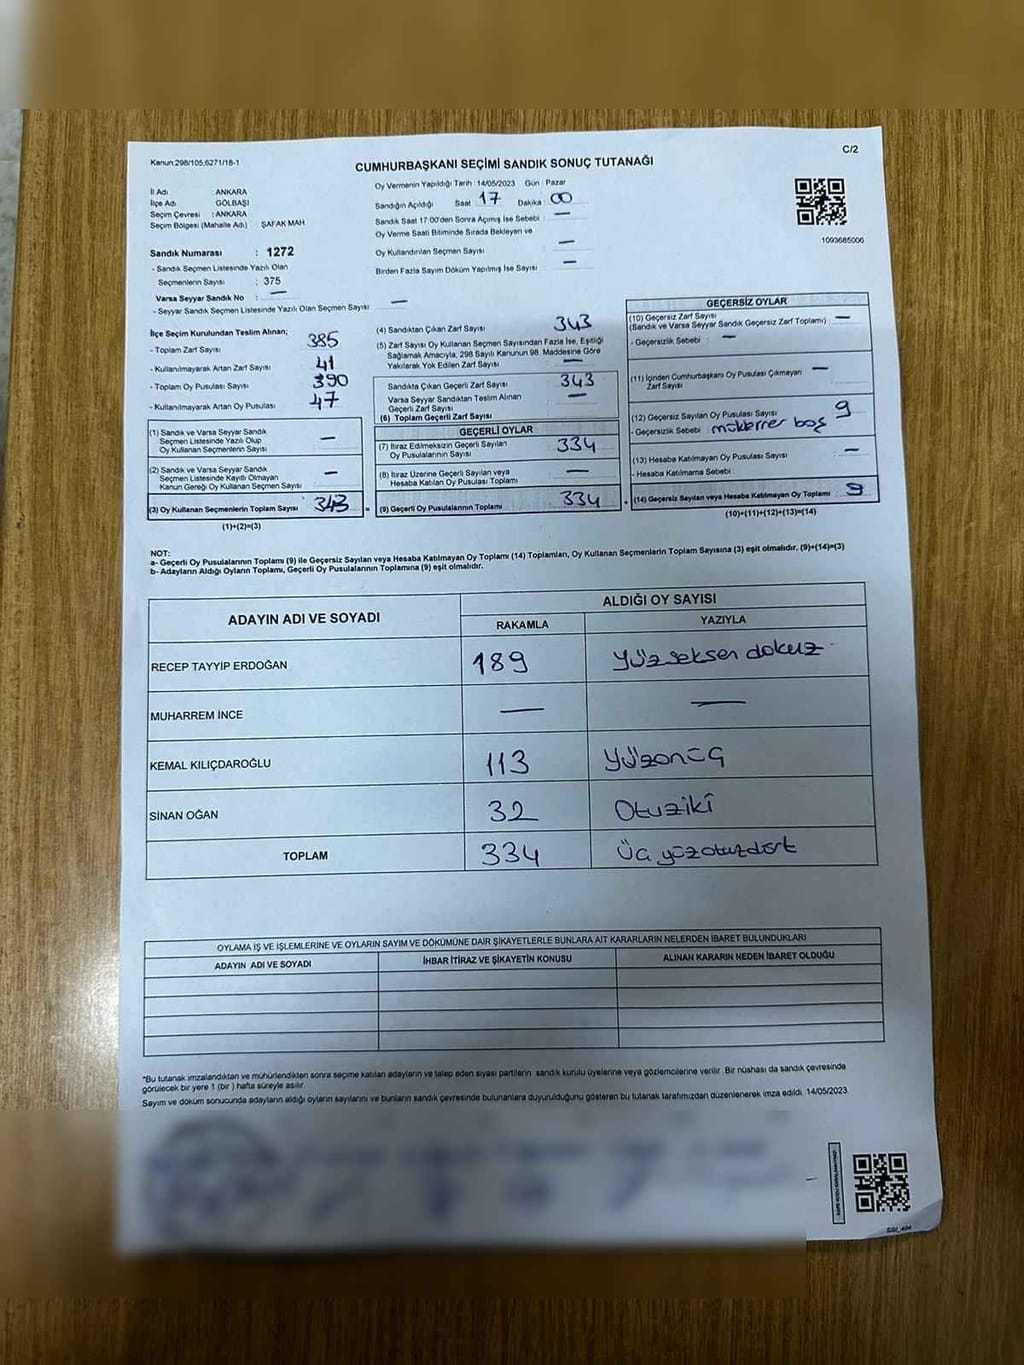 Kanun,298/105,6271/18-1
C/2
CUMHURBAŞKANI SEÇİMİ SANDIK SONUÇ TUTANAĞI
İl Adı : ANKARA
İlçe Adı : GÖLBAŞI
Seçim Çevresi : ANKARA
Seçim Bölgesi (Mahalle Adı) : ŞAFAK MAH
Sandık Numarası : 1272
- Sandık Seçmen Listesinde Yazılı Olan
Seçmenlerin Sayısı : 375
Varsa Seyyar Sandık No : —
- Seyyar Sandık Seçmen Listesinde Yazılı Olan Seçmen Sayısı : —
Oy Vermenin Yapıldığı Tarih :14/05/2023 Gün : Pazar
Sandığın Açıldığı Saat 17 Dakika 00
Sandık Saat 17:00'den Sonra Açımış İse Sebebi —
Oy Verme Saati Bitiminde Sırada Bekleyen ve
Oy Kullandırılan Seçmen Sayısı —
Birden Fazla Sayım Döküm Yapılmış İse Sayısı —
1093685006
İlçe Seçim Kurulundan Teslim Alınan;
- Toplam Zarf Sayısı 385
- Kullanılmayarak Artan Zarf Sayısı 41
- Toplam Oy Pusulası Sayısı 390
- Kullanılmayarak Artan Oy Pusulası 47
(1) Sandık ve Varsa Seyyar Sandık
Seçmen Listesinde Yazılı Olup
Oy Kullanan Seçmenlerin Sayısı —
(2) Sandık ve Varsa Seyyar Sandık
Seçmen Listesinde Kayıtlı Olmayan
Kanun Gereği Oy Kullanan Seçmen Sayısı —
(3) Oy Kullanan Seçmenlerin Toplam Sayısı 343
(1)+(2)=(3)
(4) Sandıktan Çıkan Zarf Sayısı 343
(5) Zarf Sayısı Oy Kullanan Seçmen Sayısından Fazla İse, Eşitliği
Sağlamak Amacıyla, 298 Sayılı Kanunun 98. Maddesine Göre
Yakılarak Yok Edilen Zarf Sayısı —
Sandıkta Çıkan Geçerli Zarf Sayısı 343
Varsa Seyyar Sandıktan Teslim Alınan
Geçerli Zarf Sayısı —
(6) Toplam Geçerli Zarf Sayısı
GEÇERLİ OYLAR
(7) İtiraz Edilmeksizin Geçerli Sayılan
Oy Pusulalarının Sayısı 334
(8) İtiraz Üzerine Geçerli Sayılan veya
Hesaba Katılan Oy Pusulası Toplamı —
(9) Geçerli Oy Pusulalarının Toplamı 334
GEÇERSİZ OYLAR
(10) Geçersiz Zarf Sayısı
(Sandık ve Varsa Seyyar Sandık Geçersiz Zarf Toplamı) —
- Geçersizlik Sebebi : —
(11) İçinden Cumhurbaşkanı Oy Pusulası Çıkmayan
Zarf Sayısı —
(12) Geçersiz Sayılan Oy Pusulası Sayısı 9
- Geçersizlik Sebebi mükerrer boş
(13) Hesaba Katılmayan Oy Pusulası Sayısı —
- Hesaba Katılmama Sebebi
(14) Geçersiz Sayılan veya Hesaba Katılmayan Oy Toplamı 9
(10)+(11)+(12)+(13)=(14)
NOT:
a- Geçerli Oy Pusulalarının Toplamı (9) ile Geçersiz Sayılan veya Hesaba Katılmayan Oy Toplamı (14) Toplamları, Oy Kullanan Seçmenlerin Toplam Sayısına (3) eşit olmalıdır. (9)+(14)=(3)
b- Adayların Aldığı Oyların Toplamı, Geçerli Oy Pusulalarının Toplamına (9) eşit olmalıdır.
ADAYIN ADI VE SOYADI ALDIĞI OY SAYISI
RAKAMLA YAZIYLA
RECEP TAYYİP ERDOĞAN 189 Yüzseksen dokuz
MUHARREM İNCE — —
KEMAL KILIÇDAROĞLU 113 Yüzonüç
SİNAN OĞAN 32 Otuziki
TOPLAM 334 Üç yüzotuzdört
OYLAMA İŞ VE İŞLEMLERİNE VE OYLARIN SAYIM VE DÖKÜMÜNE DAİR ŞİKAYETLERLE BUNLARA AİT KARARLARIN NELERDEN İBARET BULUNDUKLARI
ADAYIN ADI VE SOYADI İHBAR İTİRAZ VE ŞİKAYETİN KONUSU ALINAN KARARIN NEDEN İBARET OLDUĞU
*Bu tutanak imzalandıktan ve mühürlendikten sonra seçime katılan adayların ve talep eden siyasi partilerin sandık kurulu üyelerine veya gözlemcilerine verilir. Bir nüshası da sandık çevresinde
görülecek bir yere 1 (bir ) hafta süreyle asılır.
Sayım ve döküm sonucunda adayların aldığı oyların sayılarını ve bunların sandık çevresinde bulunanlara duyurulduğunu gösteren bu tutanak tarafımızdan düzenlenerek imza edildi. 14/05/2023